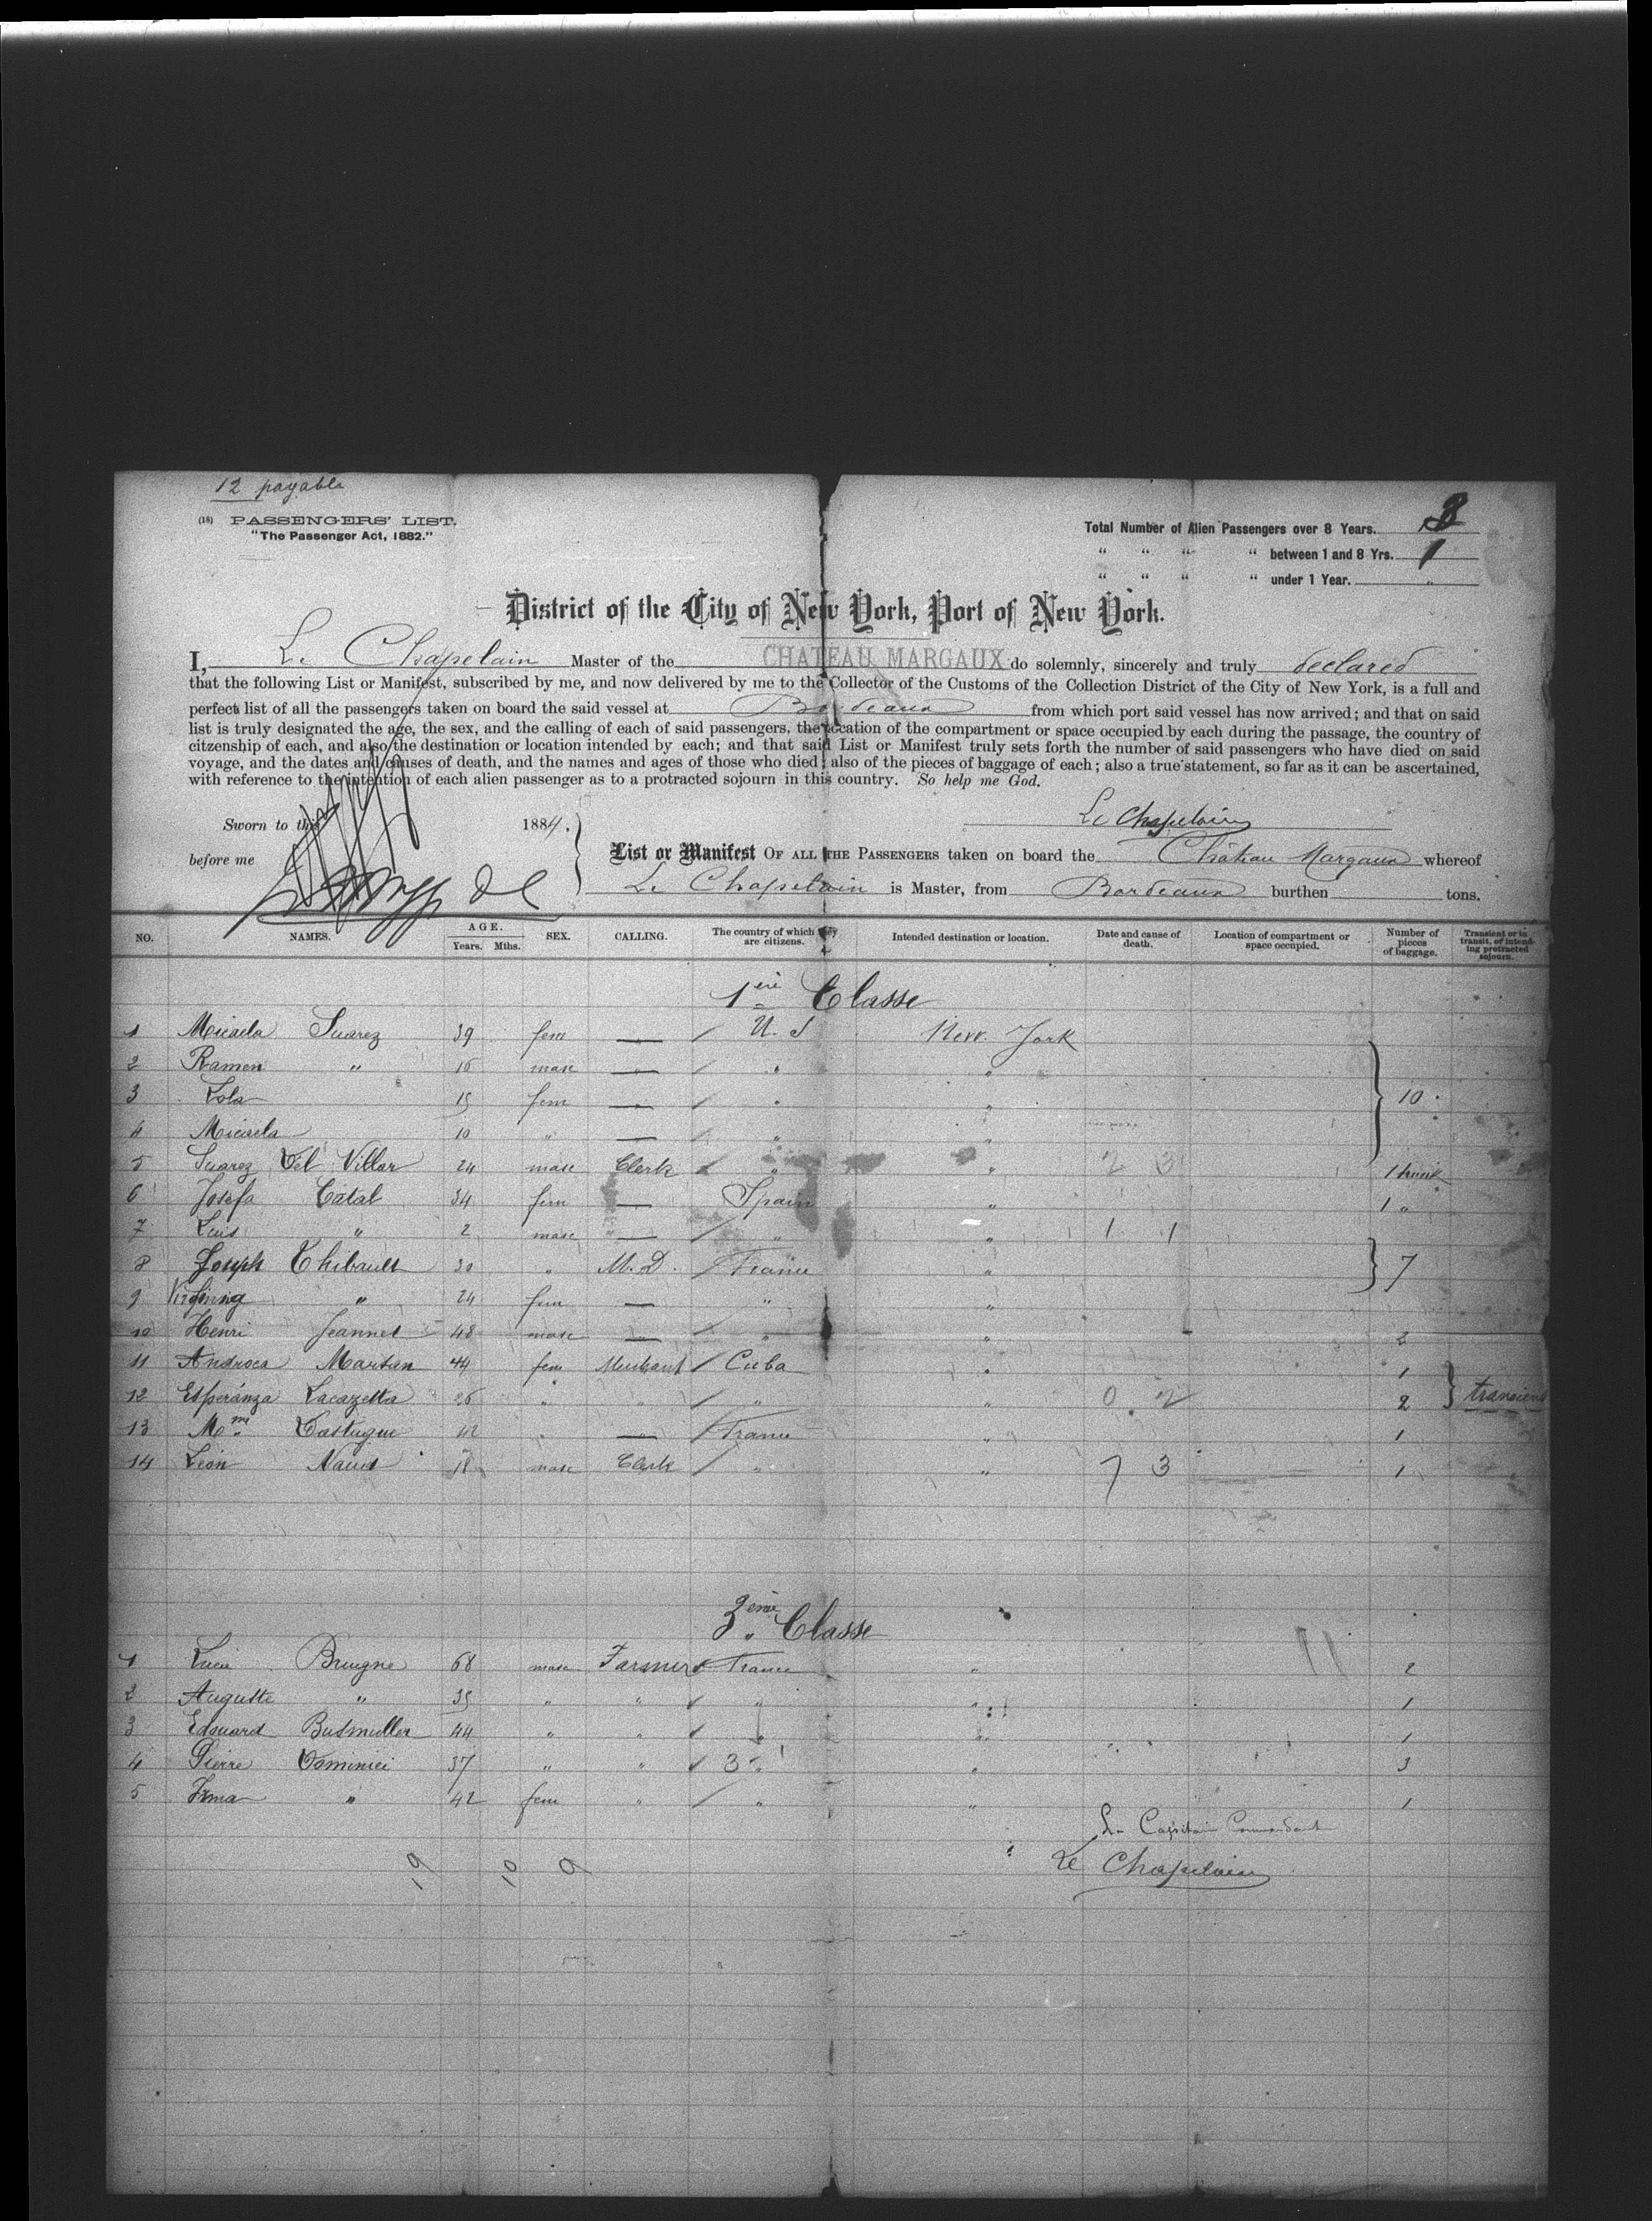 12 payable
(18) PASSENGERS' LIST.
"The Passenger Act, 1882."
Total Number of Alien Passengers over 8 Years.
" " " " between 1 and 8 Yrs. 1
" " " " under 1 Year. "
District of the City of New York, Port of New York.
I, Le Chapelain Master of the CHATEAU MARGAUX do solemnly, sincerely and truly declared
that the following List or Manifest, subscribed by me, and now delivered by me to the Collector of the Customs of the Collection District of the City of New York, is a full and
perfect list of all the passengers taken on board the said vessel at Bordeaux from which port said vessel has now arrived; and that on said
list is truly designated the age, the sex, and the calling of each of said passengers, the location of the compartment or space occupied by each during the passage, the country of
citzenship of each, and also the destination or location intended by each; and that said List or Manifest truly sets forth the number of said passengers who have died on said
voyage, and the dates and causes of death, and the names and ages of those who died; also of the pieces of baggage of each; also a true statement, so far as it can be ascertained,
with reference to the intention of each alien passenger as to a protracted sojourn in this country. So help me God.
Sworn to this 1884.
Le Chapelain
before me
List or Manifest OF ALL THE PASSENGERS taken on board the Château Margaux whereof
Le Chapelain is Master, from Bordeaux burthen tons.
NO. NAMES. AGE. Years. Mths. SEX. CALLING. The country of which they are citizens. Intended destination or location. Date and cause of death. Location of compartment or space occupied. Number of pieces of baggage. Transient or in transit, or intending protracted sojourn.
1ère Classe
1 Micaela Suarez 39 fem — / U. S New York
2 Ramon " 16 masc — / " "
3 Lola 15 fem — / " " 10
4 Micaela 10 " — / " "
5 Suarez Del Villar 24 masc Clerk / " " 2 3 1 trunk
6 Josefa Catal 34 fem — Spain " 1 "
7 Luis " 2 masc — / " " 1 1
8 Joseph Thibault 30 " M. D. / France " 7
9 " 24 fem — " "
10 Henri Jeannet 48 masc — / " " 2
11 Martan 44 fem Merchant / Cuba " 1
12 Esperanza Lacazetta 26 " " / " " 0 2 2 transient
13 Mme Castugue 42 " — / France " 1
14 Léon 18 masc Clerk / " " 7 3 1
3ème Classe
1 Brugne 68 masc Farmer France " 11 2
2 Auguste " 35 " " " " 1
3 Edouard Butmuller 44 " " " " 1
4 Pierre Dominici 37 " " 3 " " 3
5 Irma " 42 fem " / " " 1
Le Capitaine Commandant
Le Chapelain
19 10 9